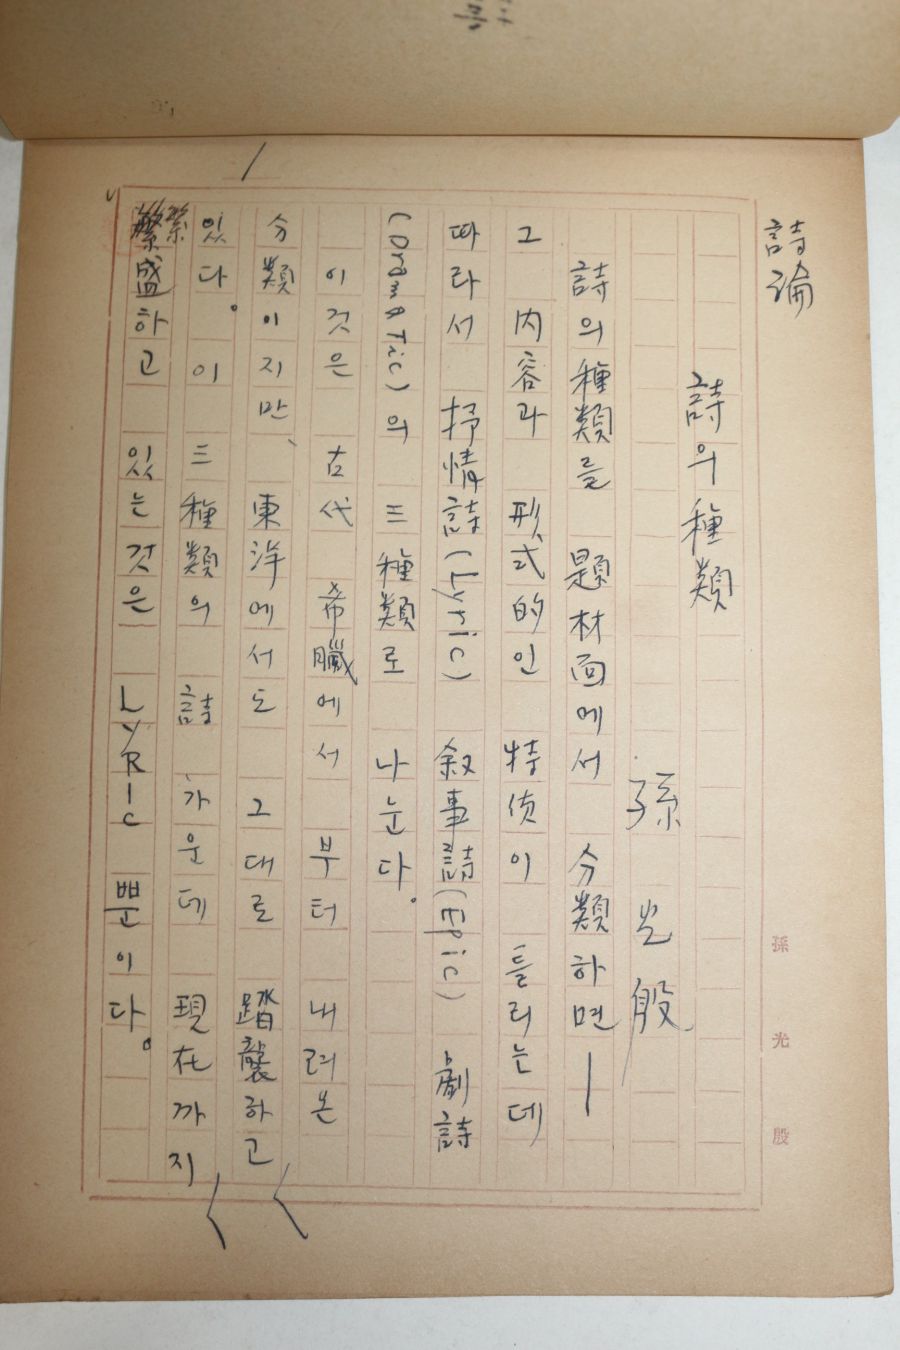 詩論
詩의 種類
孫光殷
詩의 種類를 題材面에서 分類하면—
그 内容과 形式的인 特質이 틀리는데
따라서 抒情詩(Lyric) 敘事詩(Epic) 劇詩
(DramaTic)의 三種類로 나눈다.
이것은 古代 希臘에서 부터 내려온
分類이지만、東洋에서도 그대로 踏襲하고
있다. 이 三種類의 詩 가운데 現在까지
繁盛하고 있는것은 LYRIC 뿐이다.
孫光殷